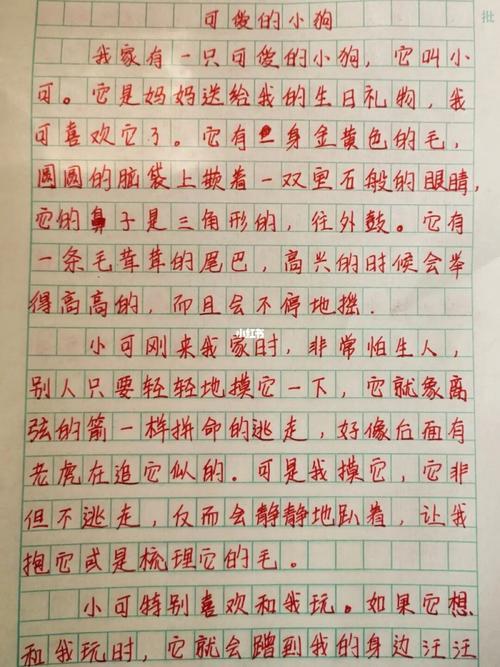 可爱的小狗
批
我家有一只可爱的小狗，它叫小
可。它是妈妈送给我的生日礼物，我
可喜欢它了。它有一身金黄色的毛，
圆圆的脑袋上嵌着一双黑石般的眼睛，
它的鼻子是三角形的，往外鼓。它有
一条毛茸茸的尾巴，高兴的时候会举
得高高的，而且会不停地摇．
小红书
小可刚来我家时，非常怕生人，
别人只要轻轻地摸它一下，它就象离
弦的箭一样拼命的逃走，好像后面有
老虎在追它似的。可是我摸它，它非
但不逃走，反而会静静地趴着，让我
抱它或是梳理它的毛。
小可特别喜欢和我玩。如果它想
和我玩时，它就会蹭到我的身边汪汪